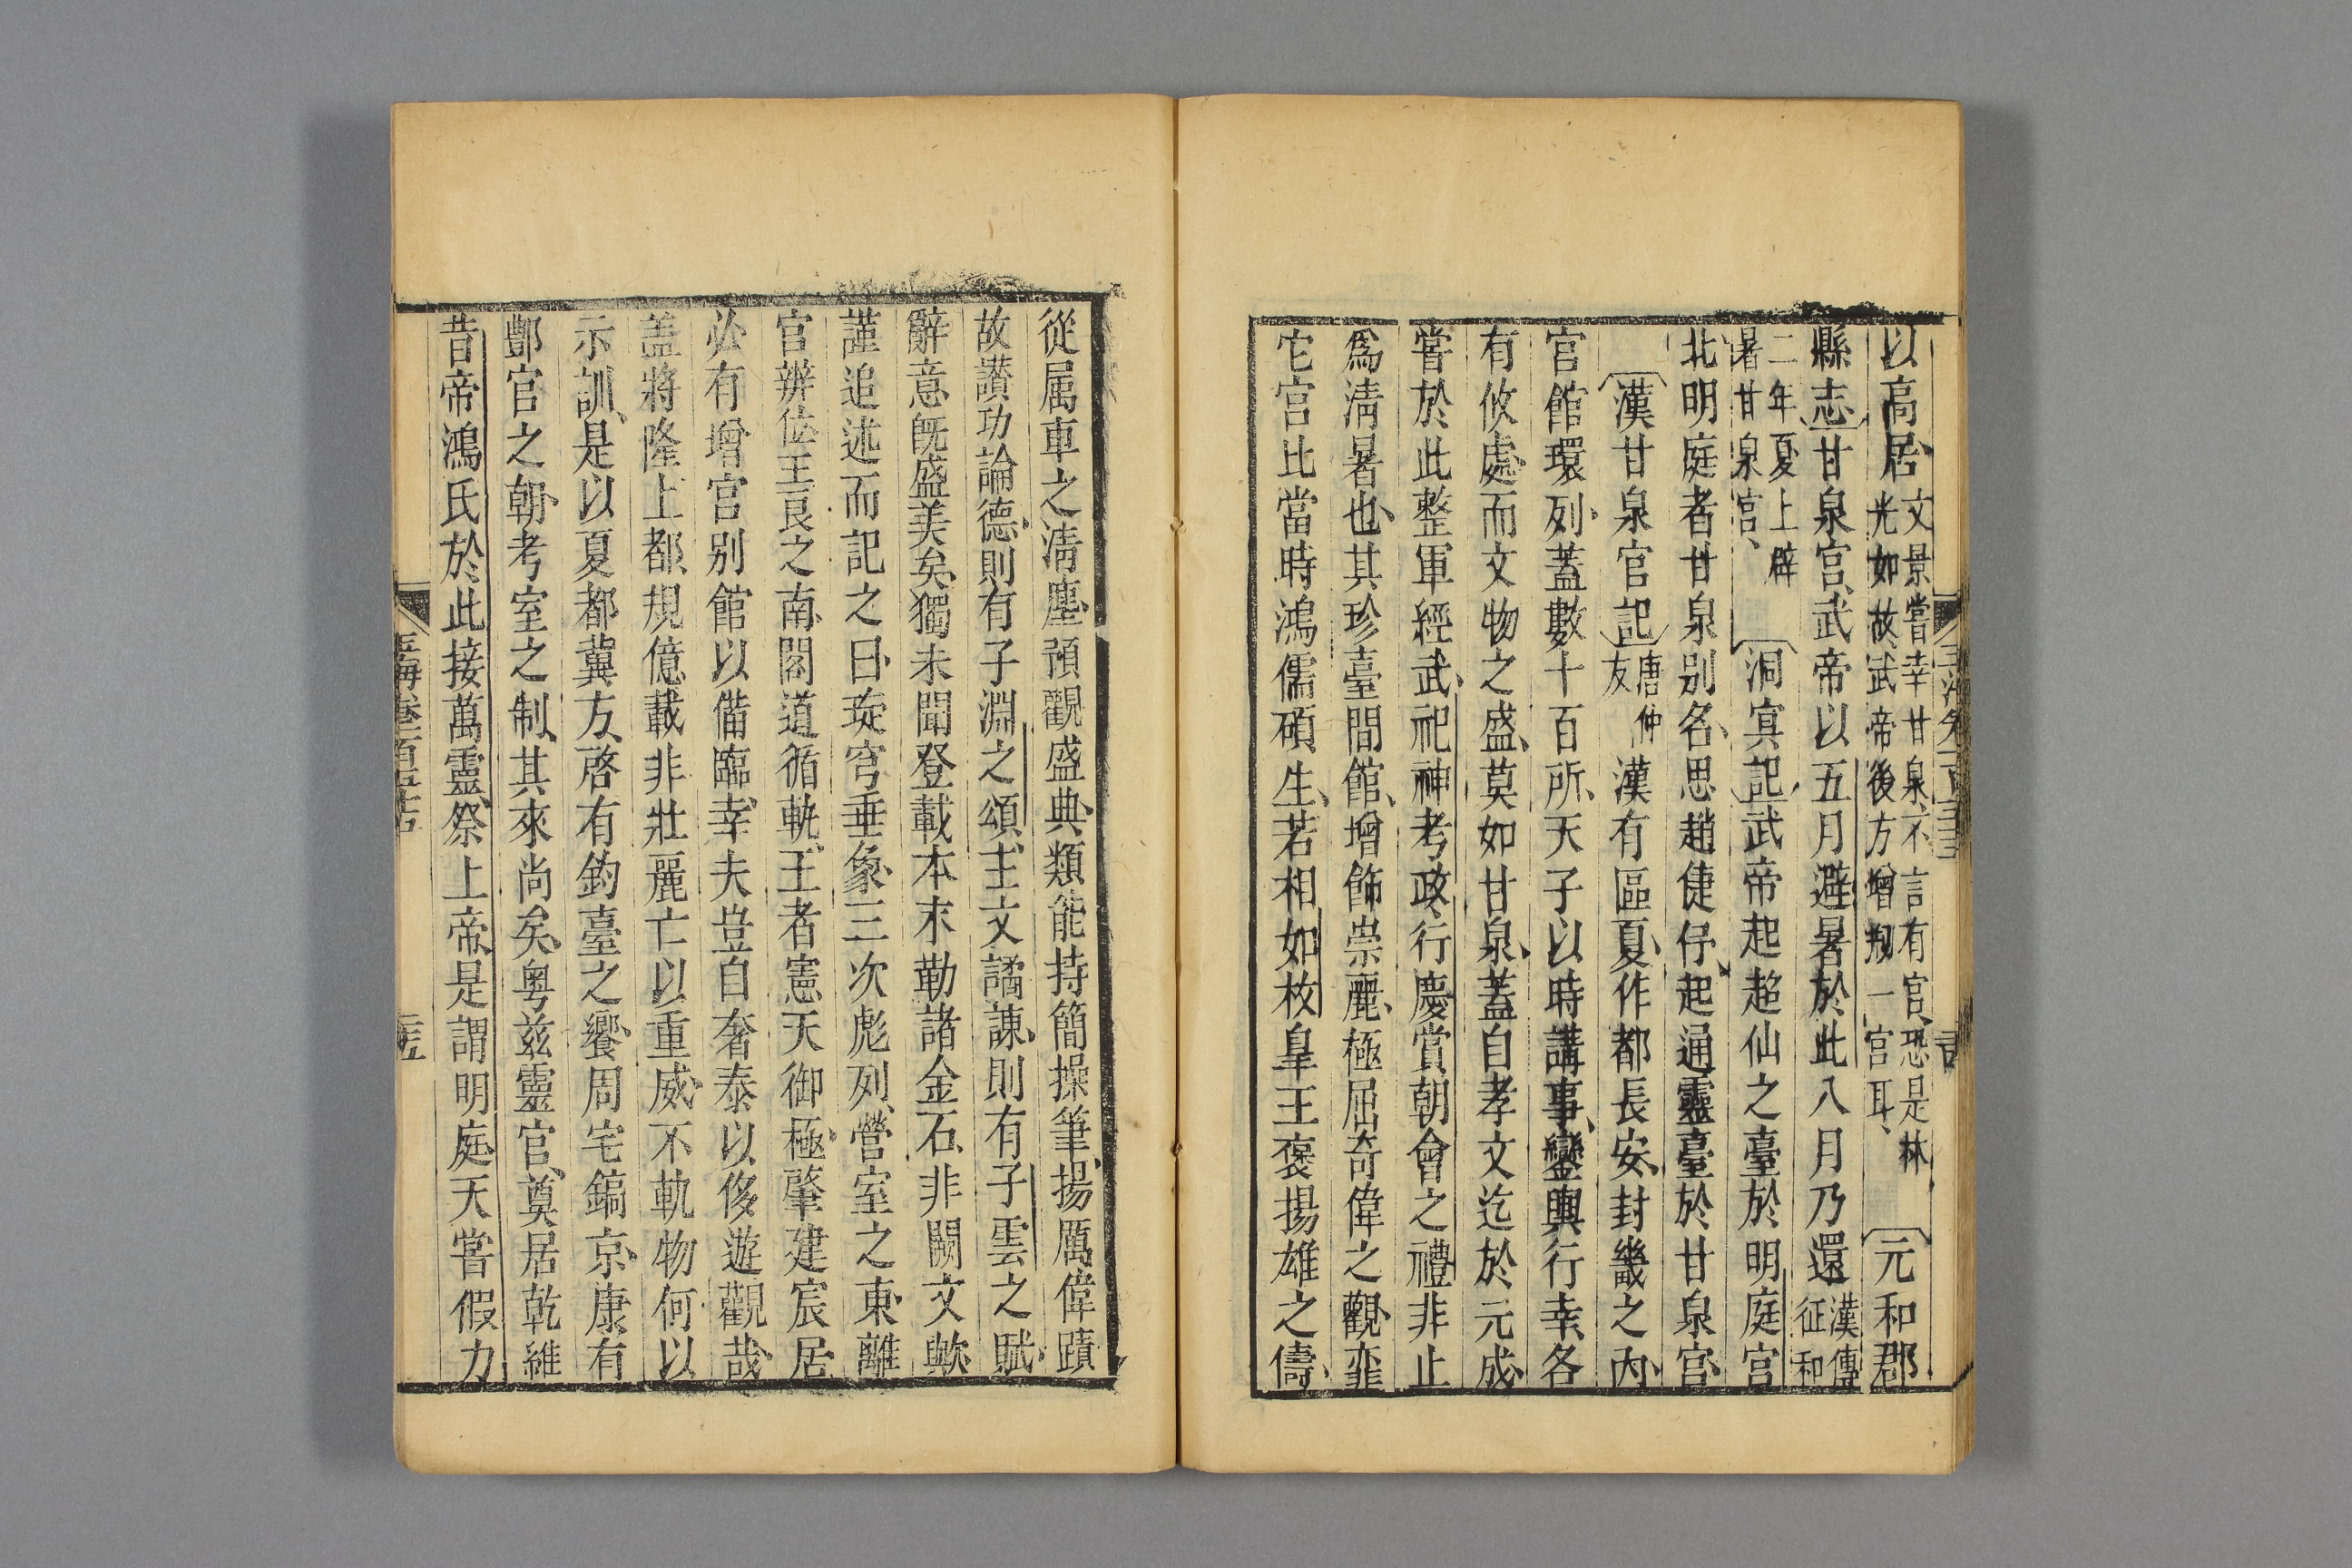 以高居文景嘗幸甘泉不言有宫恐是林光如故武帝後方增抝一宫耳元和郡
縣志甘泉宫武帝以五月避暑於此八月乃還漢傳征和
二年夏上辟暑甘泉宫洞冥記武帝起超仙之臺於明庭宫
北明庭者甘泉别名思趙倢伃起通靈臺於甘泉宫
漢甘泉宫記唐仲友漢有區夏作都長安封畿之内
宫館環列蓋數十百所天子以時講事鑾輿行幸各
有攸處而文物之盛莫如甘泉蓋自孝文迄於元成
嘗於此整軍經武祀神考政行慶賞朝會之禮非止
爲淸暑也其珍臺間館增飾崇麗極屈奇偉之觀非
它宫比當時鴻儒碩生若相如枚臯王襃揚雄之儔
從屬車之淸塵預觀盛典類能持簡操筆揚厲偉蹟
故讃功論德則有子淵之頌主文譎諫則有子雲之賦
辭意旣盛美矣獨未聞登載本末勒諸金石非闕文歟
謹追述而記之曰琁穹垂象三次彪列營室之東離
宫辨位王良之南閣道循軌王者憲天御極肇建宸居
必有增宫别館以備臨幸夫豈自奢泰以侈遊觀哉
盖將隆上都規億載非壯麗亡以重威不軌物何以
示訓是以夏都冀方啓有鈞臺之饗周宅鎬京康有
酆宫之朝考室之制其來尚矣粤兹靈宫奠居乾維
昔帝鴻氏於此接萬靈祭上帝是謂明庭天嘗假力